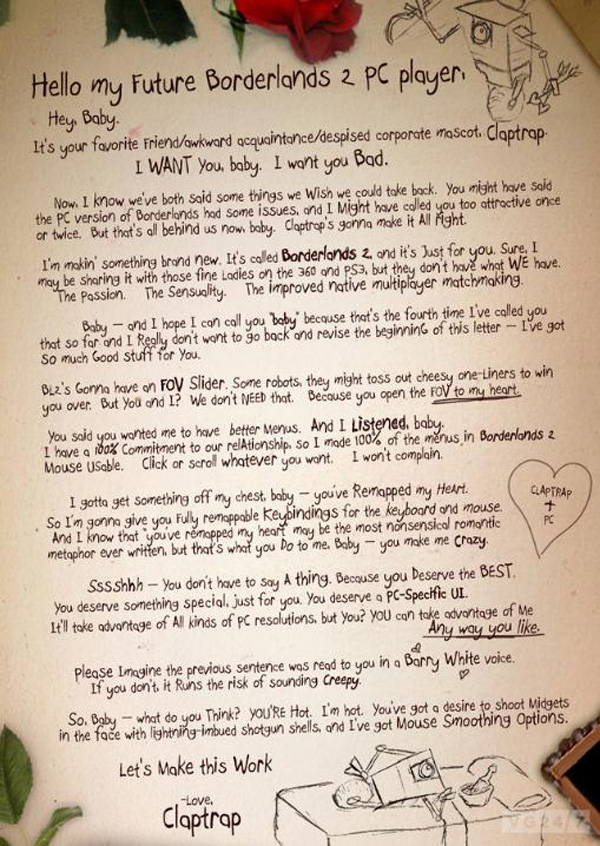 Hello my Future Borderlands 2 PC player,
Hey, Baby.
It's your favorite Friend/awkward acquaintance/despised corporate mascot, Claptrap.
I WANT You, baby. I want you Bad.
Now, I know we've both said some things we Wish we could take back. You might have said
the PC version of Borderlands had some issues, and I Might have called you too attractive once
or twice. But that's all behind us now, baby. Claptrap's gonna make it All Right.
I'm makin' something brand new. It's called Borderlands 2, and it's Just for you. Sure, I
may be sharing it with those fine Ladies on the 360 and PS3, but they don't have what WE have.
The Passion. The Sensuality. The improved native multiplayer matchmaking.
Baby — and I hope I can call you "baby" because that's the fourth time I've called you
that so far and I Really don't want to go back and revise the beginninG of this letter — I've got
So much Good stuff for You.
BL2's Gonna have an FOV Slider. Some robots, they might toss out cheesy one-Liners to win
you over. But You and I? We don't NEED that. Because you open the FOV to my heart.
You said you wanted me to have better Menus. And I Listened, baby.
I have a 100% Commitment to our relAtionship, so I made 100% of the menus in Borderlands 2
Mouse Usable. Click or scroll whatever you want. I won't complain.
I gotta get something off my chest, baby — you've Remapped my HeArt.
So I'm gonna give you Fully remappable Keybindings for the keyboard and mouse.
And I know that "you've remapped my heart" may be the most nonsensical romantic
metaphor ever written, but that's what you Do to me, Baby — you make me Crazy.
CLAPTRAP
+
PC
Sssshhh — You don't have to say A thing. Because you Deserve the BEST.
You deserve something special, just for you. You deserve a PC-Specific UI.
It'll take advantage of All kinds of PC resolutions, but You? YOU can take advantage of Me
Any way you like.
Please Imagine the previous sentence was read to you in a Barry White voice.
If you don't, it Runs the risk of sounding Creepy.
So, Baby — what do you Think? YOU'RE Hot. I'm hot. You've got a desire to shoot Midgets
in the face with lightning-imbued shotgun shells, and I've got Mouse Smoothing Options.
Let's Make this Work
-Love,
Claptrap
VG247